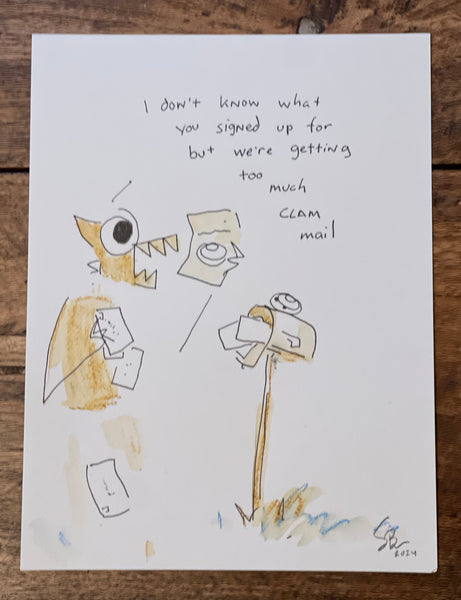 I don't know what
you signed up for
but we're getting
too
much
CLAM
mail
2024